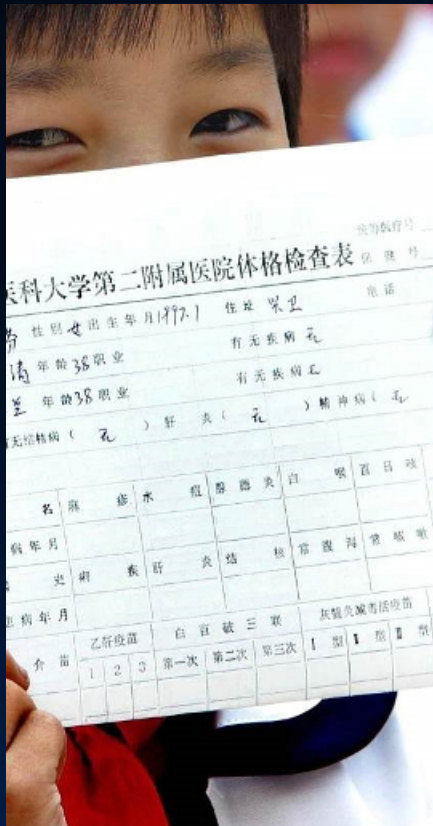 统筹医疗号
医科大学第二附属医院体格检查表 保健号
性别女出生年月1997.1 住址 电话
清 年龄38职业 有无疾病无
兰 年龄38职业 有无疾病无
有无结核病(无)肝炎(无)精神病(无
名 麻疹 水痘 腮腺炎 白喉 百日咳
病年月
史 痢疾 肝炎 结核 常腹泻 常咳嗽
患病年月
介苗 乙肝疫苗 白百破三联 灰髓炎减毒活疫苗
1 2 3 第一次 第二次 第三次 Ⅰ型 Ⅱ型 Ⅲ型